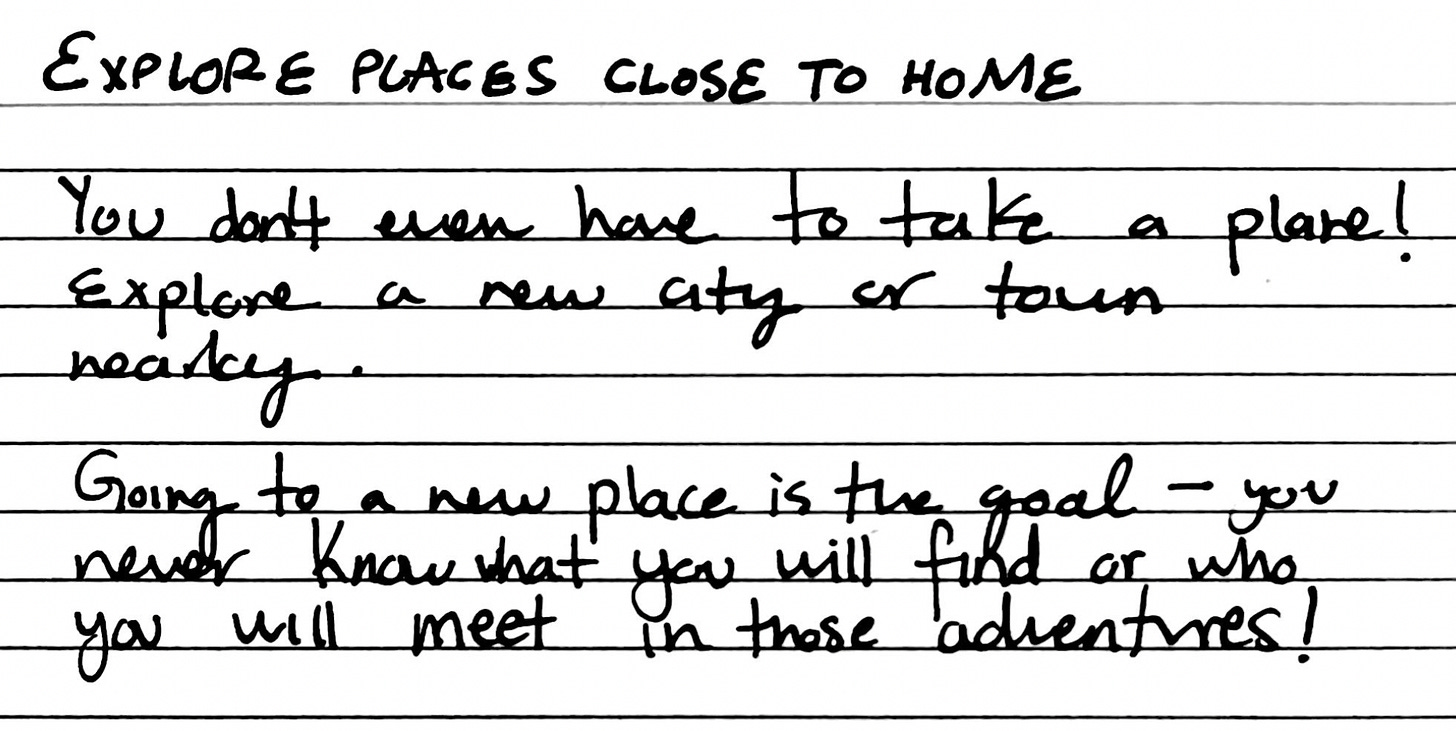 EXPLORE PLACES CLOSE TO HOME
You don't even have to take a plane!
Explore a new city or town
nearby.
Going to a new place is the goal – you
never know what you will find or who
you will meet in those adventures!